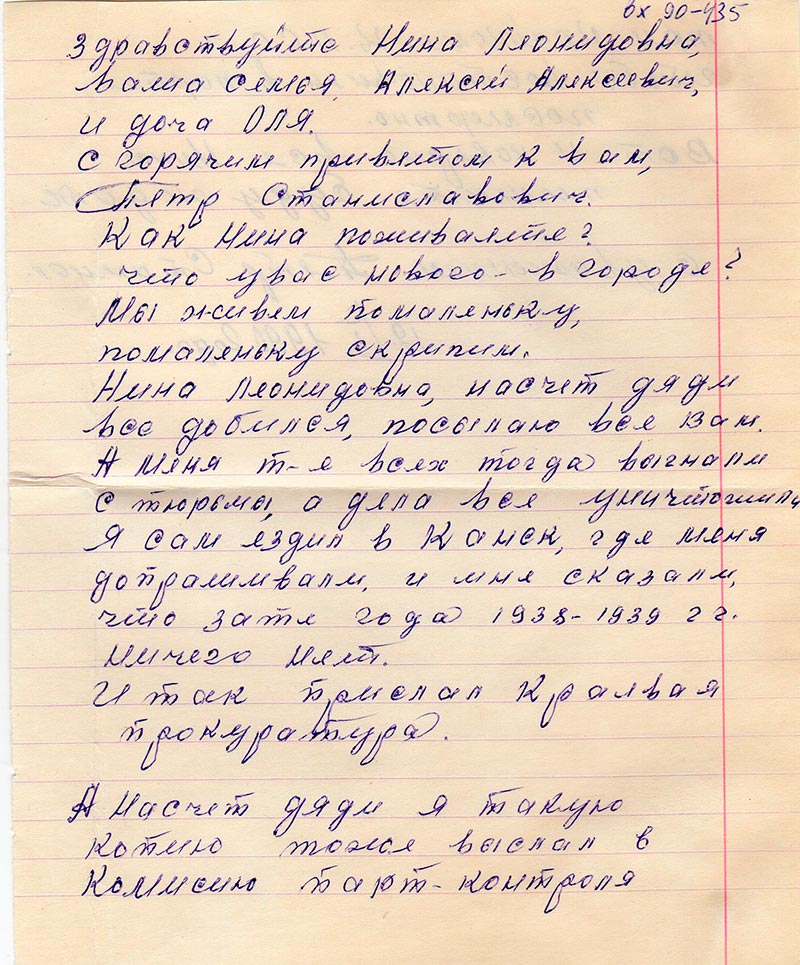 вх 90-435
Здравствуйте Нина Леонидовна,
ваша семья, Алексей Алексеевич,
и доча Оля.
С горячим приветом к вам,
Петр Станиславович.
Как Нина поживаете?
что у вас нового в городе?
Мы живем помаленьку,
помаленьку скрипим.
Нина Леонидовна, насчет дяди
все добился, посылаю все вам.
А меня т-е всех тогда выгнали
с тюрьмы, а дела все уничтожили
Я сам ездил в Канск, где меня
допрашивали, и мне сказали,
что за те года 1938-1939 гг.
ничего нет.
И так прислал Краевая
прокуратура.
А насчет дяди я такую
копию тоже выслал в
Комисию парт-контроля